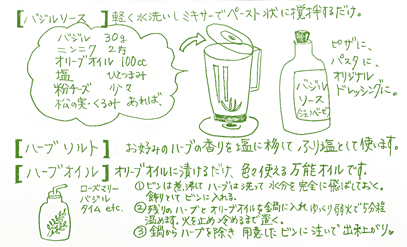 【バジルソース】軽く水洗いしミキサーでペースト状に撹拌するだけ。
バジル 30g
ニンニク 2片
オリーブオイル 100cc
塩 ひとつまみ
粉チーズ 少々
松の実・くるみ あれば、
バジル
ソース
ジェノベーゼ
ピザに、
パスタに、
オリジナル
ドレッシングに。
【ハーブソルト】お好みのハーブの香りを塩に移して、ふり塩として使います。
【ハーブオイル】オリーブオイルに漬けるだけ、色々使える万能オイルです。
ローズマリー
バジル
タイム etc.
①ビンは煮沸して ハーブは洗って 水分を完全に飛ばしておく。
飾りとして ビンに入れる。
②残りのハーブとオリーブオイルを鍋に入れ ゆっくり弱火で5分程
温めます。火を止め 冷めるまで置く。
③鍋からハーブを除き 用意したビンに注いで出来上がり。